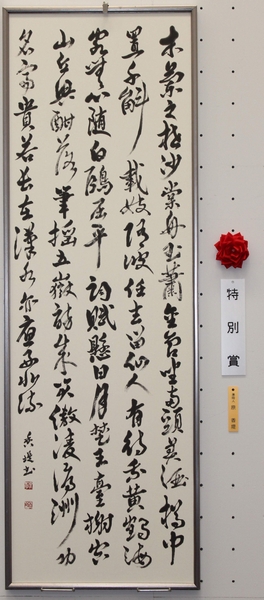 木蘭之枻沙棠舟玉簫金管坐兩頭美酒樽中
置千斛載妓隨波任去留仙人有待乘黃鶴海
客無心隨白鷗屈平詞賦懸日月楚王臺榭空
山丘興酣落筆搖五嶽詩成笑傲凌滄洲功
名富貴若長在漢水亦應西北流
特別賞